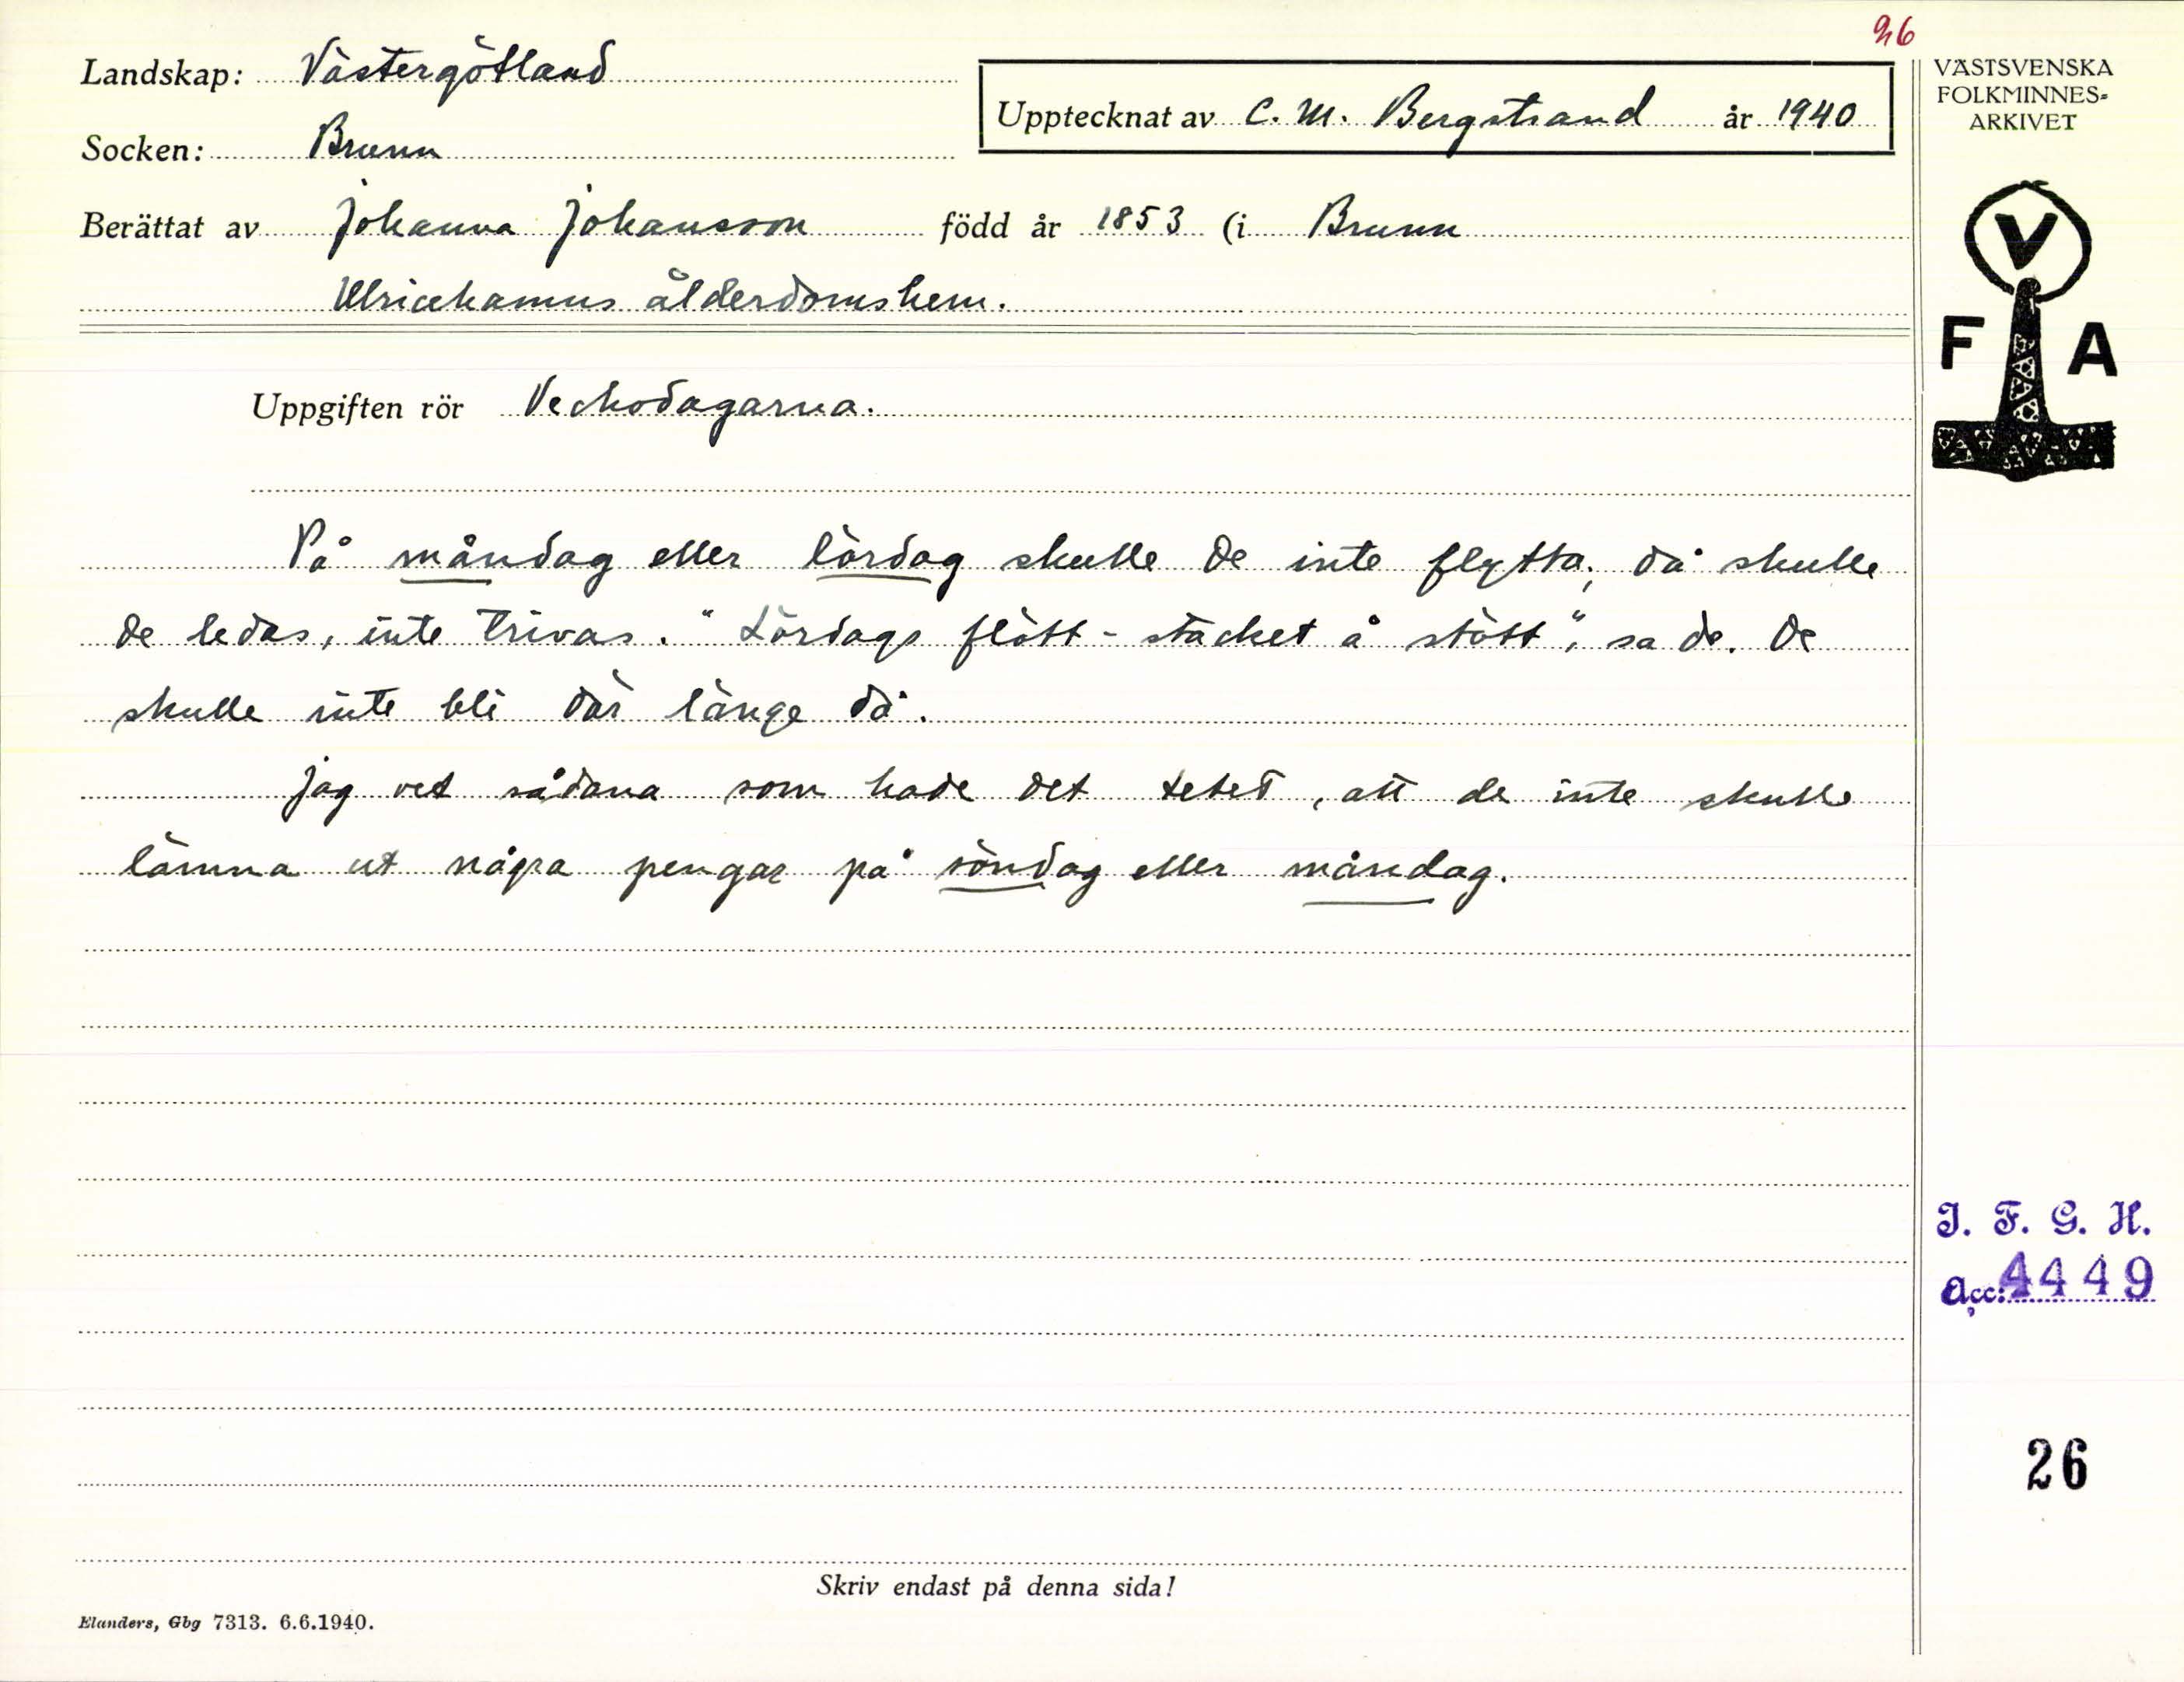 26
Landskap: Västergötland
Upptecknat av C. M. Bergstrand år 1940
VÄSTSVENSKA
FOLKMINNES=
ARKIVET
Socken: Brunn
Berättat av Johanna Johansson född år 1853 (i Brunn
Ulricehamns ålderdomshem.
V
F A
Uppgiften rör Veckodagarna.
På måndag eller lördag skulle de inte flytta; då skulle
de ledas, inte trivas. "Lördags flött - stacket å stött", sa de. De
skulle inte bli där länge då.
Jag vet sådana som hade det , att de inte skulle
lämna ut några pengar på söndag eller måndag.
I. F. G. H.
Acc: 4449
26
Skriv endast på denna sida!
Elanders, Gbg 7313. 6.6.1940.